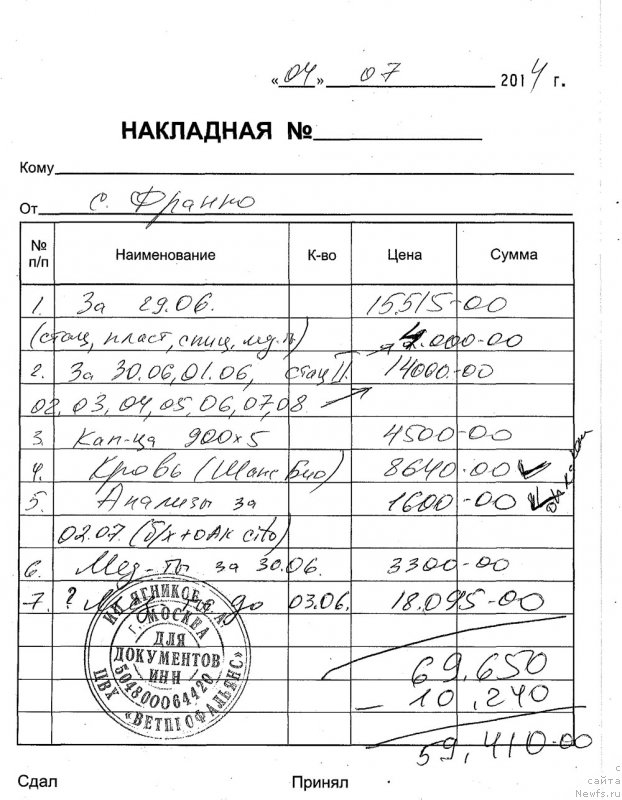 «04» 07 2014 г.
НАКЛАДНАЯ №
Кому
От с. Франко
№ п/п Наименование К-во Цена Сумма
1. За 29.06. 15515-00
(стац, пласт, спиц, мед-ты) 4.000-00
2. За 30.06, 01.06, стац II. 14000-00
02, 03, 04, 05, 06, 07, 08.
3. Кап-ца 900x5 4500-00
4. Кровь (Шанс Био) 8640-00
5. Анализы за 1600-00
02.07. (б/х+оАк cito)
6. Мед-ты за 30.06. 3300-00
7. ? до 03.06. 18.095-00
69,650
- 10,240
59,410-00
ИП ЯГНИКОВ С.А.
г. МОСКВА
ДЛЯ
ДОКУМЕНТОВ
ИНН
504800064420
ЦВХ «ВЕТПРОФАЛЬЯНС»
Сдал Принял
с
сайта
Newfs.ru